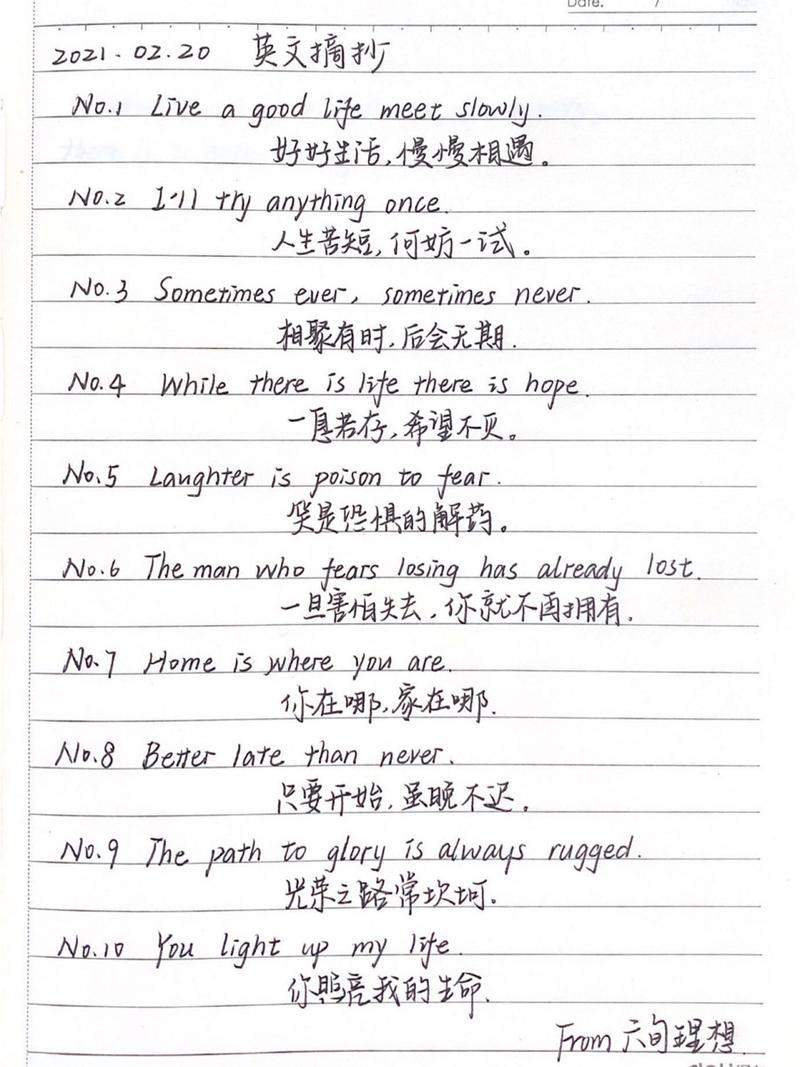 Date. /
2021.02.20 英文摘抄
No.1 Live a good life meet slowly.
好好生活,慢慢相遇。
No.2 I'll try anything once.
人生苦短,何妨一试。
No.3 Sometimes ever, sometimes never.
相聚有时,后会无期.
No.4 While there is life there is hope.
一息若存,希望不灭。
No.5 Laughter is poison to fear.
笑是恐惧的解药。
No.6 The man who fears losing has already lost.
一旦害怕失去,你就不再拥有.
No.7 Home is where you are.
你在哪,家在哪.
No.8 Better late than never.
只要开始,虽晚不迟。
No.9 The path to glory is always rugged.
光荣之路常坎坷.
No.10 You light up my life.
你照亮我的生命.
From 六旬理想.